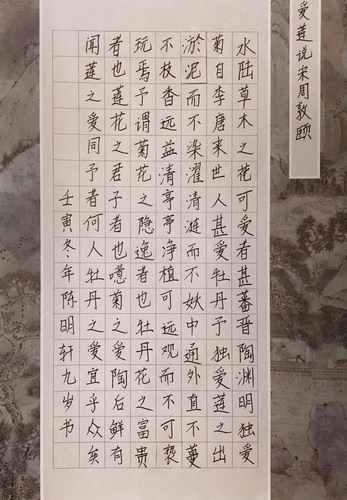 爱莲说宋周敦颐
水陆草木之花可爱者甚蕃晋陶渊明独爱
菊自李唐来世人甚爱牡丹予独爱莲之出
淤泥而不染濯清涟而不妖中通外直不蔓
不枝香远益清亭亭净植可远观而不可亵
玩焉予谓菊花之隐逸者也牡丹花之富贵
者也莲花之君子者也噫菊之爱陶后鲜有
闻莲之爱同予者何人牡丹之爱宜乎众矣
壬寅冬年陈明轩九岁书